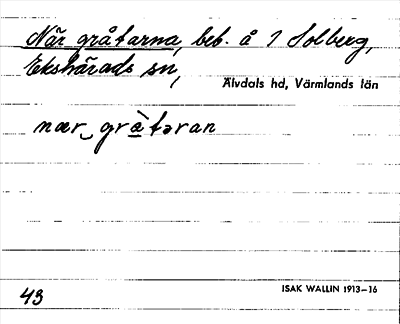 När gråtarna, beb. å 1 Solberg,
Ekshärads sn,
Älvdals hd, Värmlands län
nær‿grà̱təran
ISAK WALLIN 1913–16
43